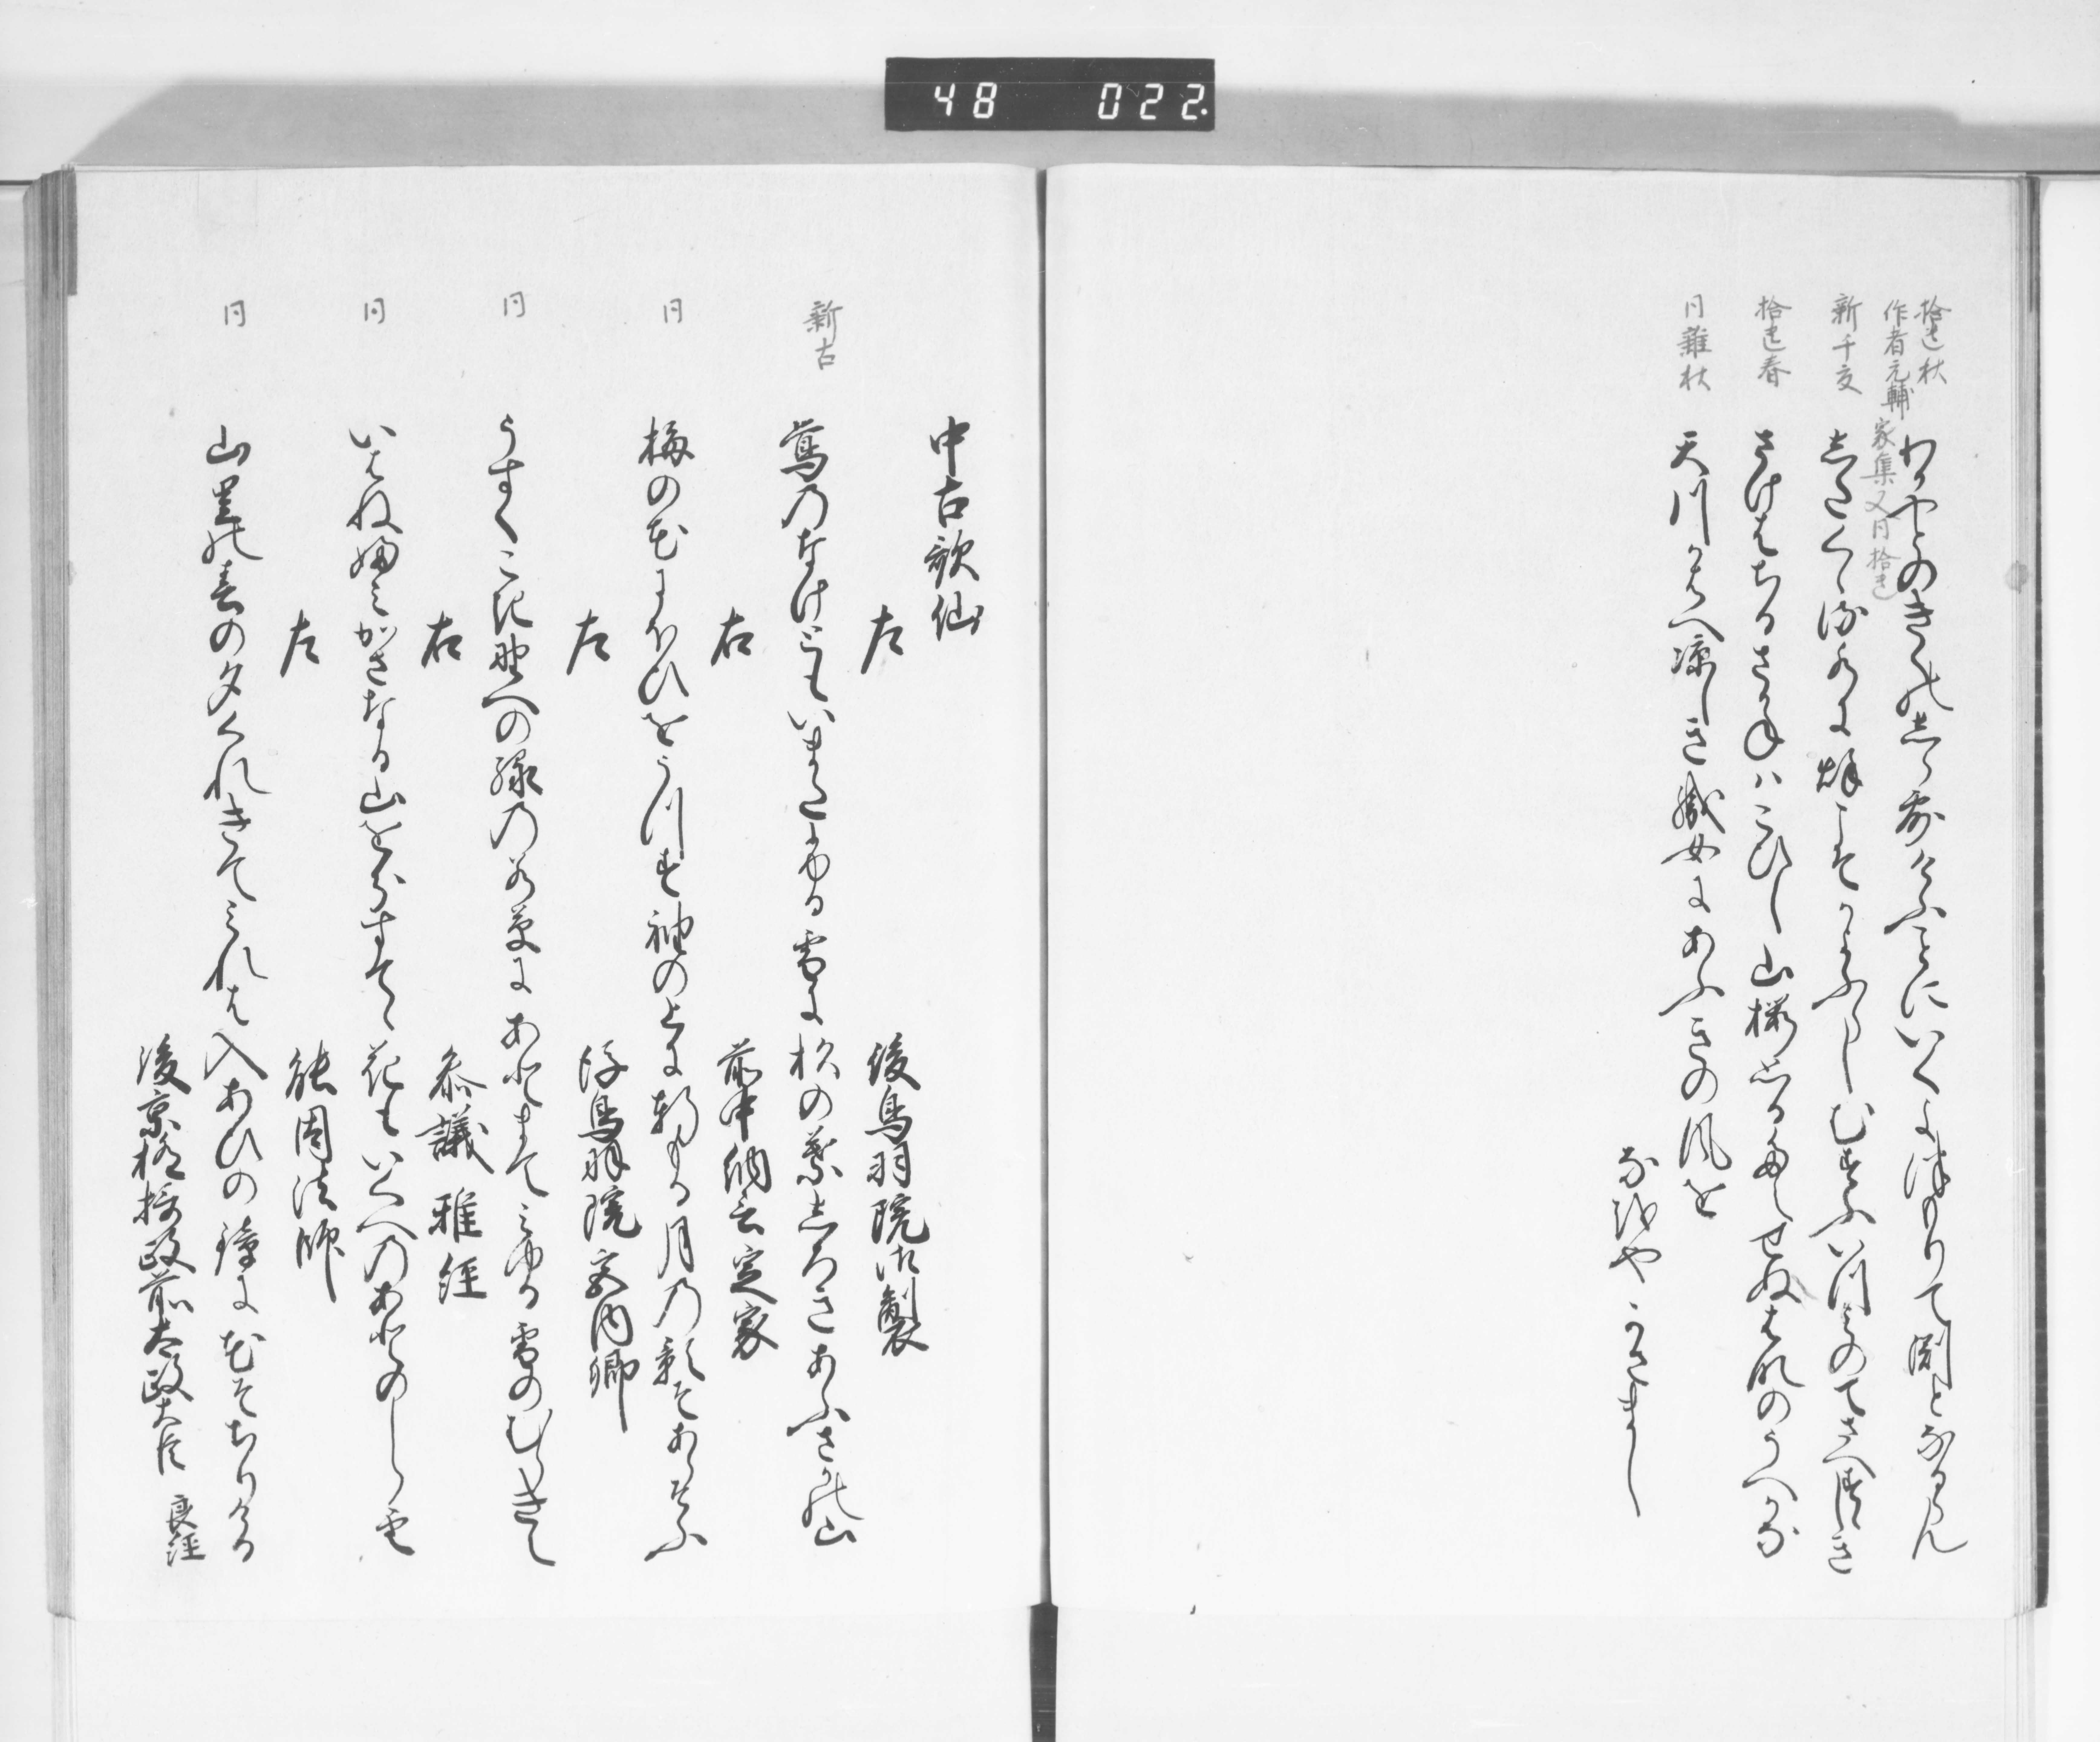 48 022.
拾遺秋
作者元輔 家集又同拾遺
わかやとのきくの志ら露けふことにいくよ津もりて渕となるらん
新千夏
志たくゝる水に秋こそかよふらしむすふいつみのてさへ涼しき
拾遺春
さけはちるさかねはこひし山桜思ひたえせぬ花のうへかな
同雑秋
天川かはへ涼しき織女にあふきの風を
なをやかさまし
中古歌仙
左 後鳥羽院御製
新古
鴬のなけともいまたふる雪に杉の葉志ろきあふさかの山
右 前中納言定家
同
梅の花にほひをうつす袖の上に軒もる月の影そあらそふ
左 後鳥羽院宮内卿
同
うすくこき野へのみとりの若草にあとまてみゆる雪のむらきえ
右 参議雅経
同
いはねふみかさなる山を分すてゝ花もいくへのあとのしら雲
左 能因法師
同
山里の春の夕くれきてみれは入あひの鐘に花そちりける
後京極摂政前太政大臣 良経